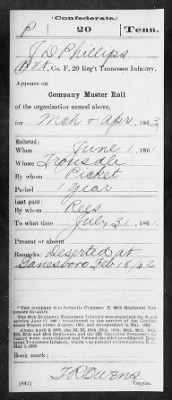 (Confederate.)
P 20 Tenn.
J D Phillips
Pvt, Co. F, 20 Reg't Tennessee Infantry.
Appears on
Company Muster Roll
of the organization named above,
for Mch & Apr, 1863
Enlisted:
When June 1, 1861
Where Trousdale
By whom Picket
Period 1 year
Last paid:
By whom Rees
To what time July 31, 186
Present or absent
Remarks: Deserted at
Gainesboro Feb 18, 62
Book mark:
T R Owens
(642) Copyist.